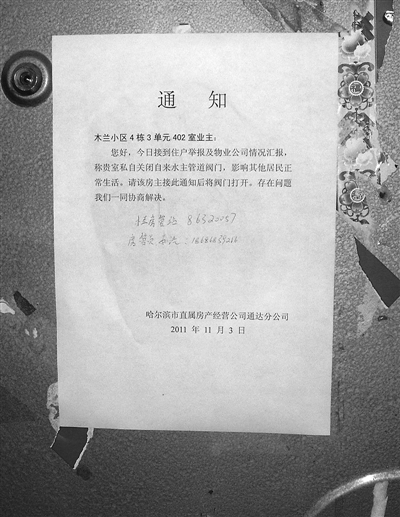 通 知
木兰小区 4 栋 3 单元 402 室业主:
您好,今日接到住户举报及物业公司情况汇报,
称贵室私自关闭自来水主管道阀门,影响其他居民正
常生活。请该房主接此通知后将阀门打开。存在问题
我们一同协商解决。
房管员
哈尔滨市直属房产经营公司通达分公司
2011 年 11 月 3 日